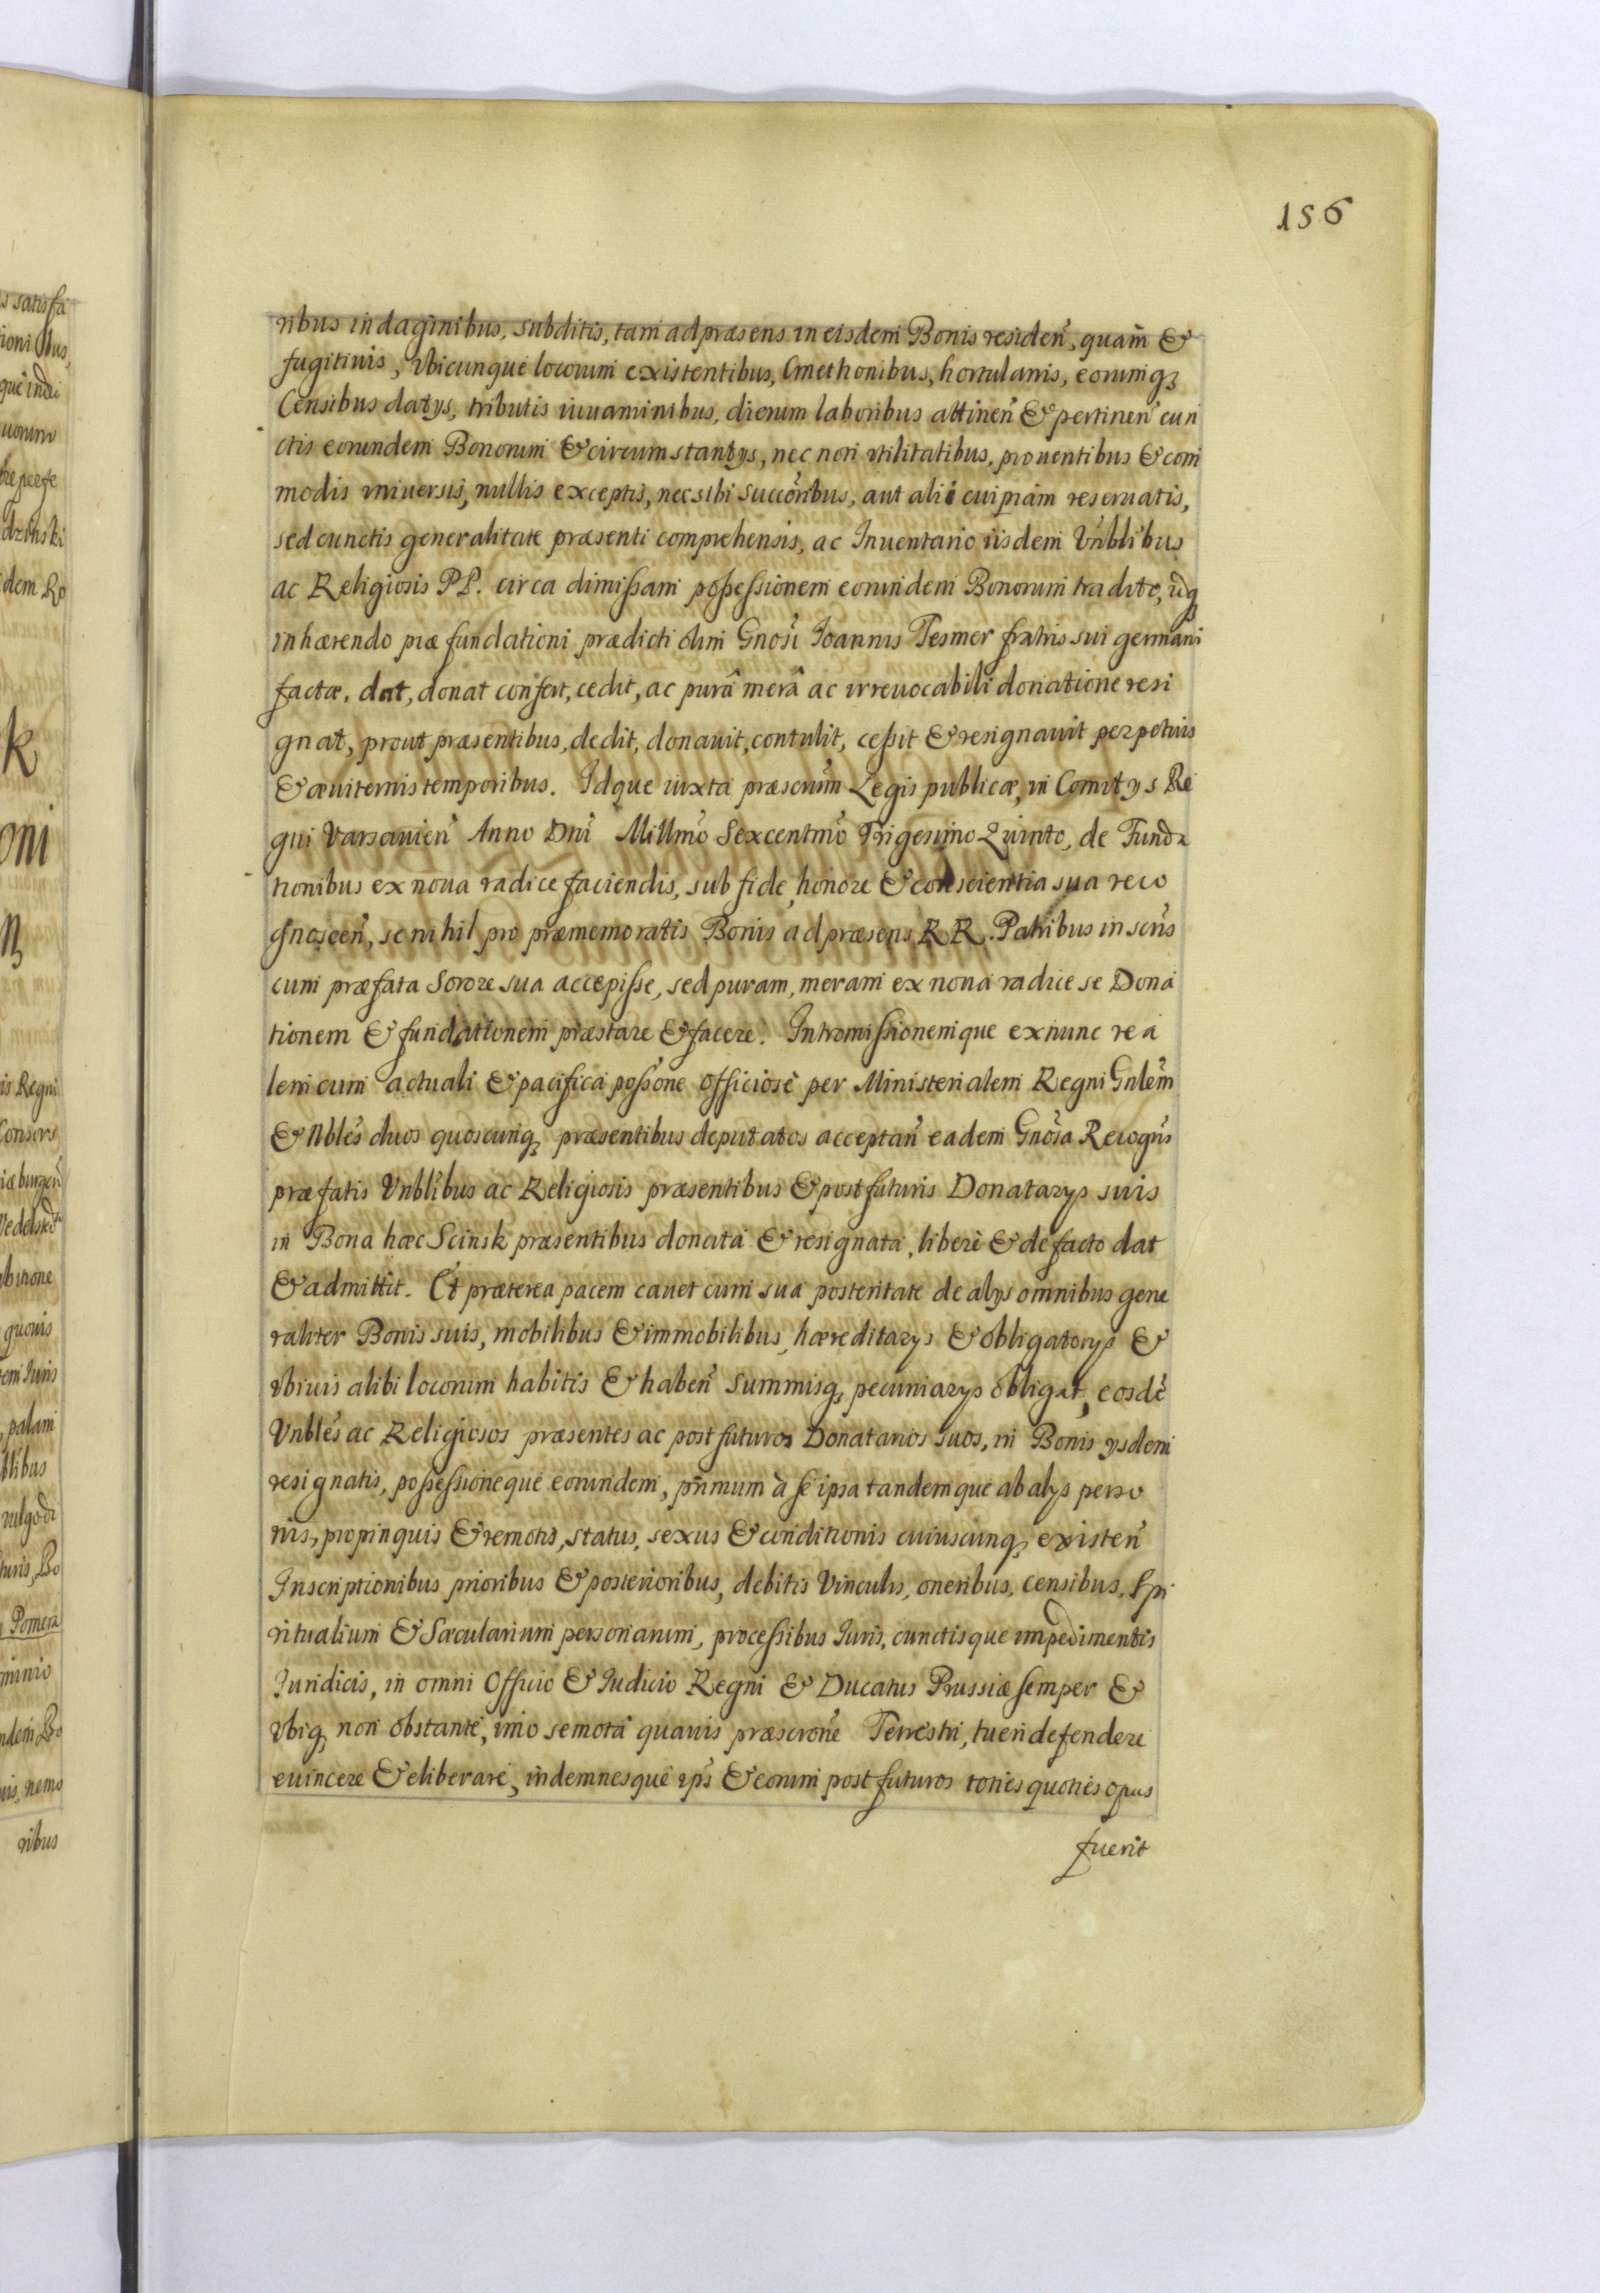 156
ribus indaginibus, subditis, tam ad præsens in eisdem Bonis residen̄, quàm &
fugitiuis, Vbicunque locorum existentibus, Cmethonibus, hortulanis, eorumq̨
Censibus datijs, tributis iuuaminibus, dierum laboribus attinen̄ & pertinen̄ cun
ctis eorundem Bonorum & circumstantijs, nec non vtilitatibus, prouentibus & com
modis vniuersis, nullis exceptis, nec sibi succōribus, aut alij cuipiam reseruatis,
sed cunctis generalitate præsenti comprehensis, ac Inuentario iisdem Vn̄blibus
ac Religiosis P P. circa dimissam possessionem eorundem Bonorum tradito, idq̨
inhærendo piæ fundationi prædicti olim Gnōsi Joannis Tesmer fratris sui germani
factæ, dat, donat confert, cedit, ac purâ merâ ac irreuocabili donatione resi
gnat, prout præsentibus, dedit, donauit, contulit, cessit & resignauit perpetuis
& æuiternis temporibus. Idque iuxta præscrm̄ Legis publicæ, in Comitijs Re
gni Varsauien̄ Anno Dn̄i Millm̄o Sexcentm̄o Trigesimo Quinto, de Funda
tionibus ex noua radice faciendis, sub fide, honore & conscientia sua reco
gnoscen̄, se nihil pro præmemoratis Bonis ad præsens R R. Patribus inscr̄is
cum præfata Sorore sua accepisse, sed puram, meram ex noua radice se Dona
tionem & fundationem præstare & facere. Intromissionemque ex nunc rea
lem cum actuali & pacifica possōne officiosè per Ministerialem Regni Gnlēm
& Nblēs duos quoscunq̨ præsentibus deputatos acceptan̄ eadem Gnōsa Recogn̄s
præfatis Vnblībus ac Religiosis præsentibus & post futuris Donatarijs suis
in Bona hæc Scinsk præsentibus donata & resignata, liberè & de facto dat
& admittit. Et præterea pacem cauet cum sua posteritate de alijs omnibus gene
raliter Bonis suis, mobilibus & immobilibus, hæreditarijs & obligatorijs &
vbiuis alibi locorum habitis & haben̄ summisq̨ pecuniarijs obligat, eosdē
Vnblēs ac Religiosos præsentes ac post futuros Donatarios suos, in Bonis ijsdem
resignatis, possessioneque eorundem, primum à se ipsa tandemque ab alijs perso
nis, propinquis & remotis, status, sexus & conditionis cuiuscunq̨ existen̄
Inscriptionibus prioribus & posterioribus, debitis Vinculis, oneribus, censibus, Spi
ritualium & Sæcularium personarum, processibus Iuris, cunctisque impedimentis
Iuridicis, in omni Officio & Iudicio Regni & Ducatus Prussiæ semper &
vbiq̨ non obstante, imo semotâ quauis præscrōne Terrestri, tueri defendere
euincere & eliberare, indemnesque ip̄s & eorum post futuros toties quoties opus
fuerit